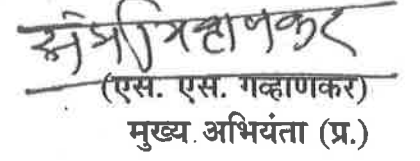 (एस. एस. गव्हाणकर)
मुख्य अभियंता (प्र.)